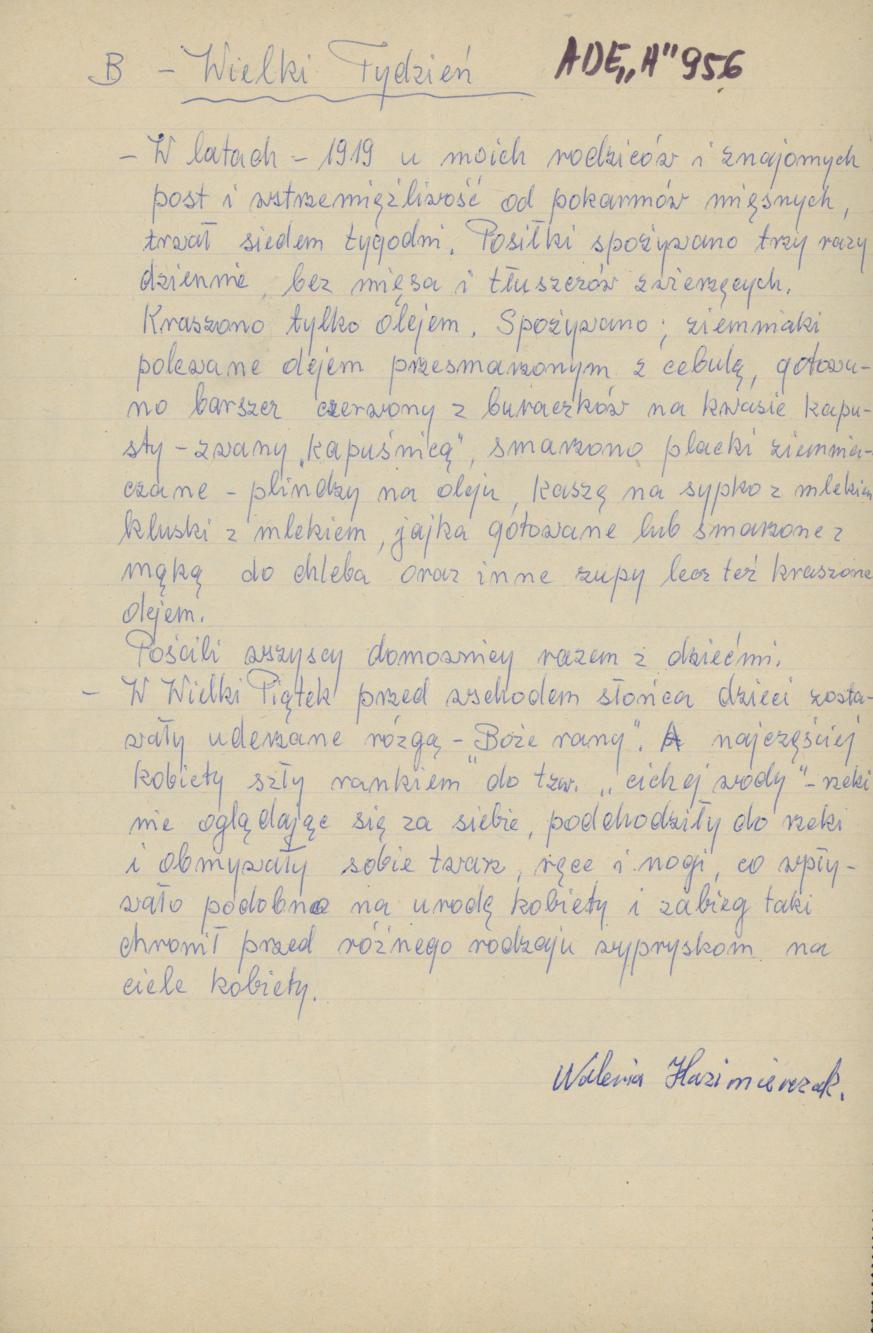 B - Wielki Tydzień ADE„H" 956
- W latach - 1919 u moich rodziców i znajomych
post i wstrzemięźliwość od pokarmów mięsnych,
trwał siedem tygodni. Posiłki spożywano trzy razy
dziennie, bez mięsa i tłuszczów zwierzęcych.
Kraszono tylko olejem. Spożywano; ziemniaki
polewane olejem przesmarzonym z cebulą, gotowa-
no barszcz czerwony z buraczków na kwasie kapu-
sty - zwany „kapuśnicą", smarzono placki ziemnia-
czane - plindzy na oleju, kaszę na sypko z mlekiem
kluski z mlekiem, jajka gotowane lub smarzone z
mąką do chleba oraz inne zupy lecz też kraszone
olejem.
Pościli wszyscy domownicy razem z dziećmi.
- W Wielki Piątek przed wschodem słońca dzieci zosta-
wały uderzane rózgą - Boże rany". A najczęściej
kobiety szły rankiem" do tzw. „cichej wody" - rzeki
nie oglądając się za siebie, podchodziły do rzeki
i obmywały sobie twarz, ręce i nogi, co wpły-
wało podobno na urodę kobiety i zabieg taki
chronił przed różnego rodzaju wypryskom na
ciele kobiety.
Waleria Kazimierczak.